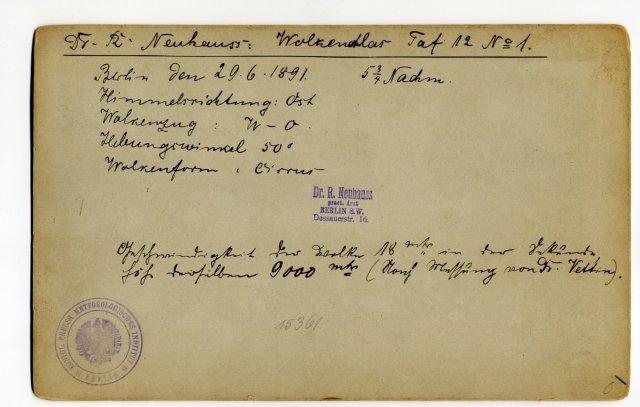 Dr. R. Neuhauss: Wolkenatlas Taf 12 No 1.
Berlin den 29.6.1891. 5 3/4 Nachm.
Himmelsrichtung: Ost
Wolkenzug: W-O.
Hebungswinkel 50°
Wolkenform: Cirrus
Dr. R. Neuhauss
pract. Arzt
BERLIN S.W.
Dessauerstr. 16.
Geschwindigkeit der Wolke 18 mtr in der Sekunde
Höhe derselben 9000 mtr (Nach Messung von Dr. Vettin).
15361
KÖNIGL. PREUSS. METEOROLOGISCHES INSTITUT
BERLIN